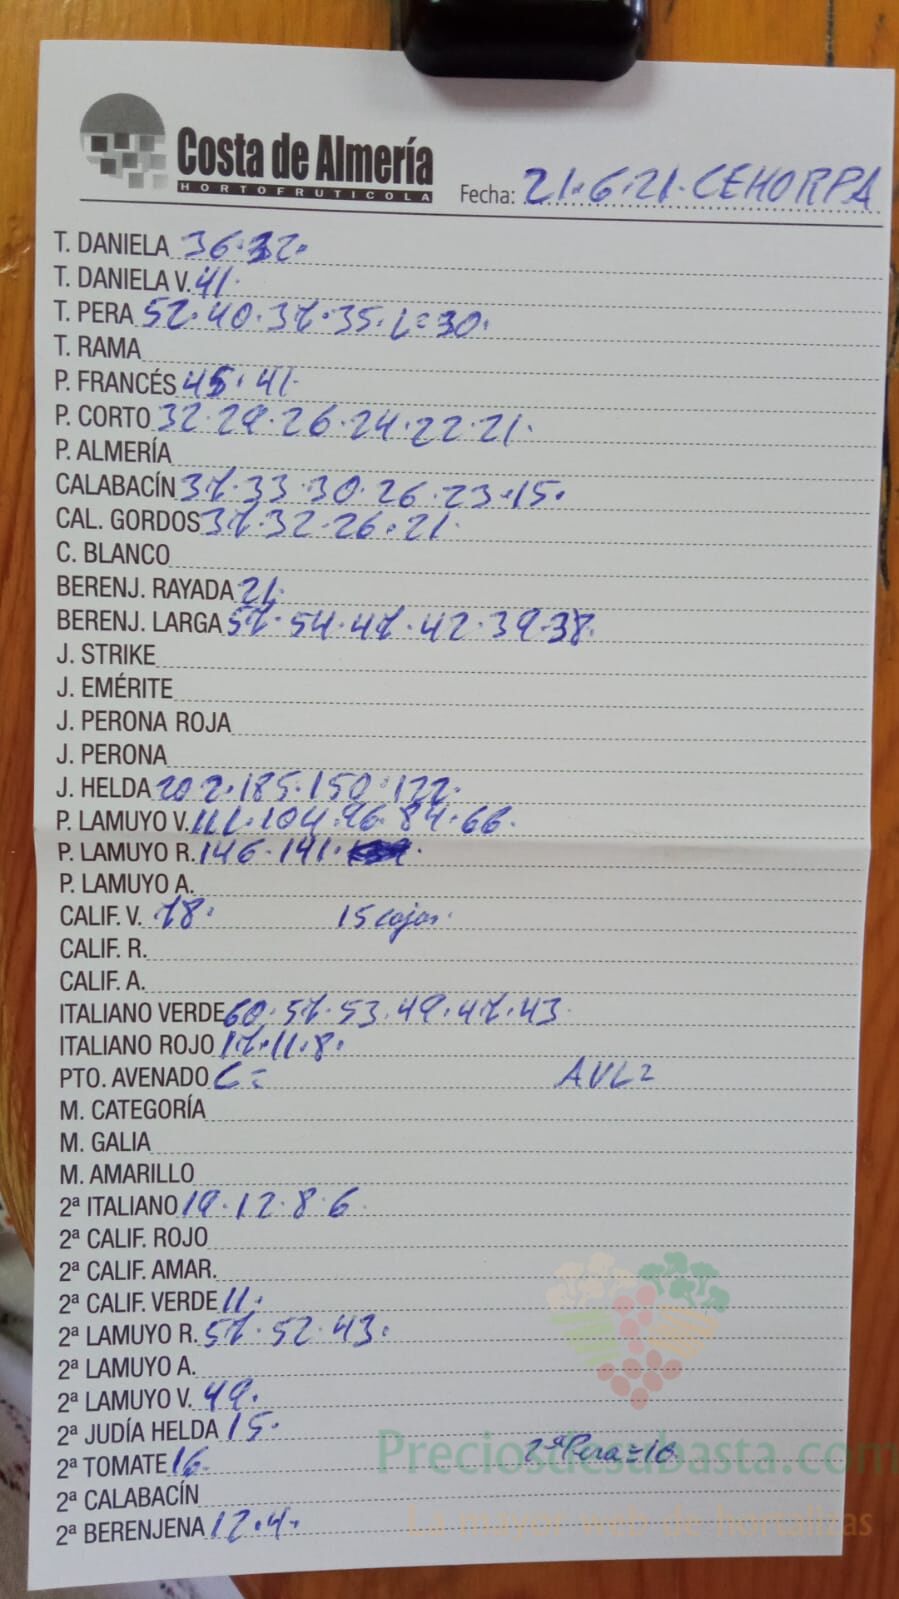 Costa de Almería
HORTOFRUTICOLA
Fecha: 21.6.21. CEHORPA
T. DANIELA 36.32.
T. DANIELA V. 41.
T. PERA 52.40.37.35. L=30.
T. RAMA
P. FRANCÉS 45.41.
P. CORTO 32.29.26.24.22.21.
P. ALMERÍA
CALABACÍN 37.33.30.26.23.15.
CAL. GORDOS 37.32.26.21.
C. BLANCO
BERENJ. RAYADA 21.
BERENJ. LARGA 57.54.47.42.39.38.
J. STRIKE
J. EMÉRITE
J. PERONA ROJA
J. PERONA
J. HELDA 202.185.150.122.
P. LAMUYO V. 111.104.96.84.66.
P. LAMUYO R. 146.141.
P. LAMUYO A.
CALIF. V. 78. 15 cajas.
CALIF. R.
CALIF. A.
ITALIANO VERDE 60.57.53.49.47.43
ITALIANO ROJO 17.11.8.
PTO. AVENADO C= AVL=
M. CATEGORÍA
M. GALIA
M. AMARILLO
2ª ITALIANO 19.12.8.6.
2ª CALIF. ROJO
2ª CALIF. AMAR.
2ª CALIF. VERDE 11.
2ª LAMUYO R. 57.52.43.
2ª LAMUYO A.
2ª LAMUYO V. 49.
2ª JUDÍA HELDA 15.
2ª TOMATE 16. 2ª Pera=16
Preciosdesubasta.com
2ª CALABACÍN
La mayor web de hortalizas
2ª BERENJENA 12.4.